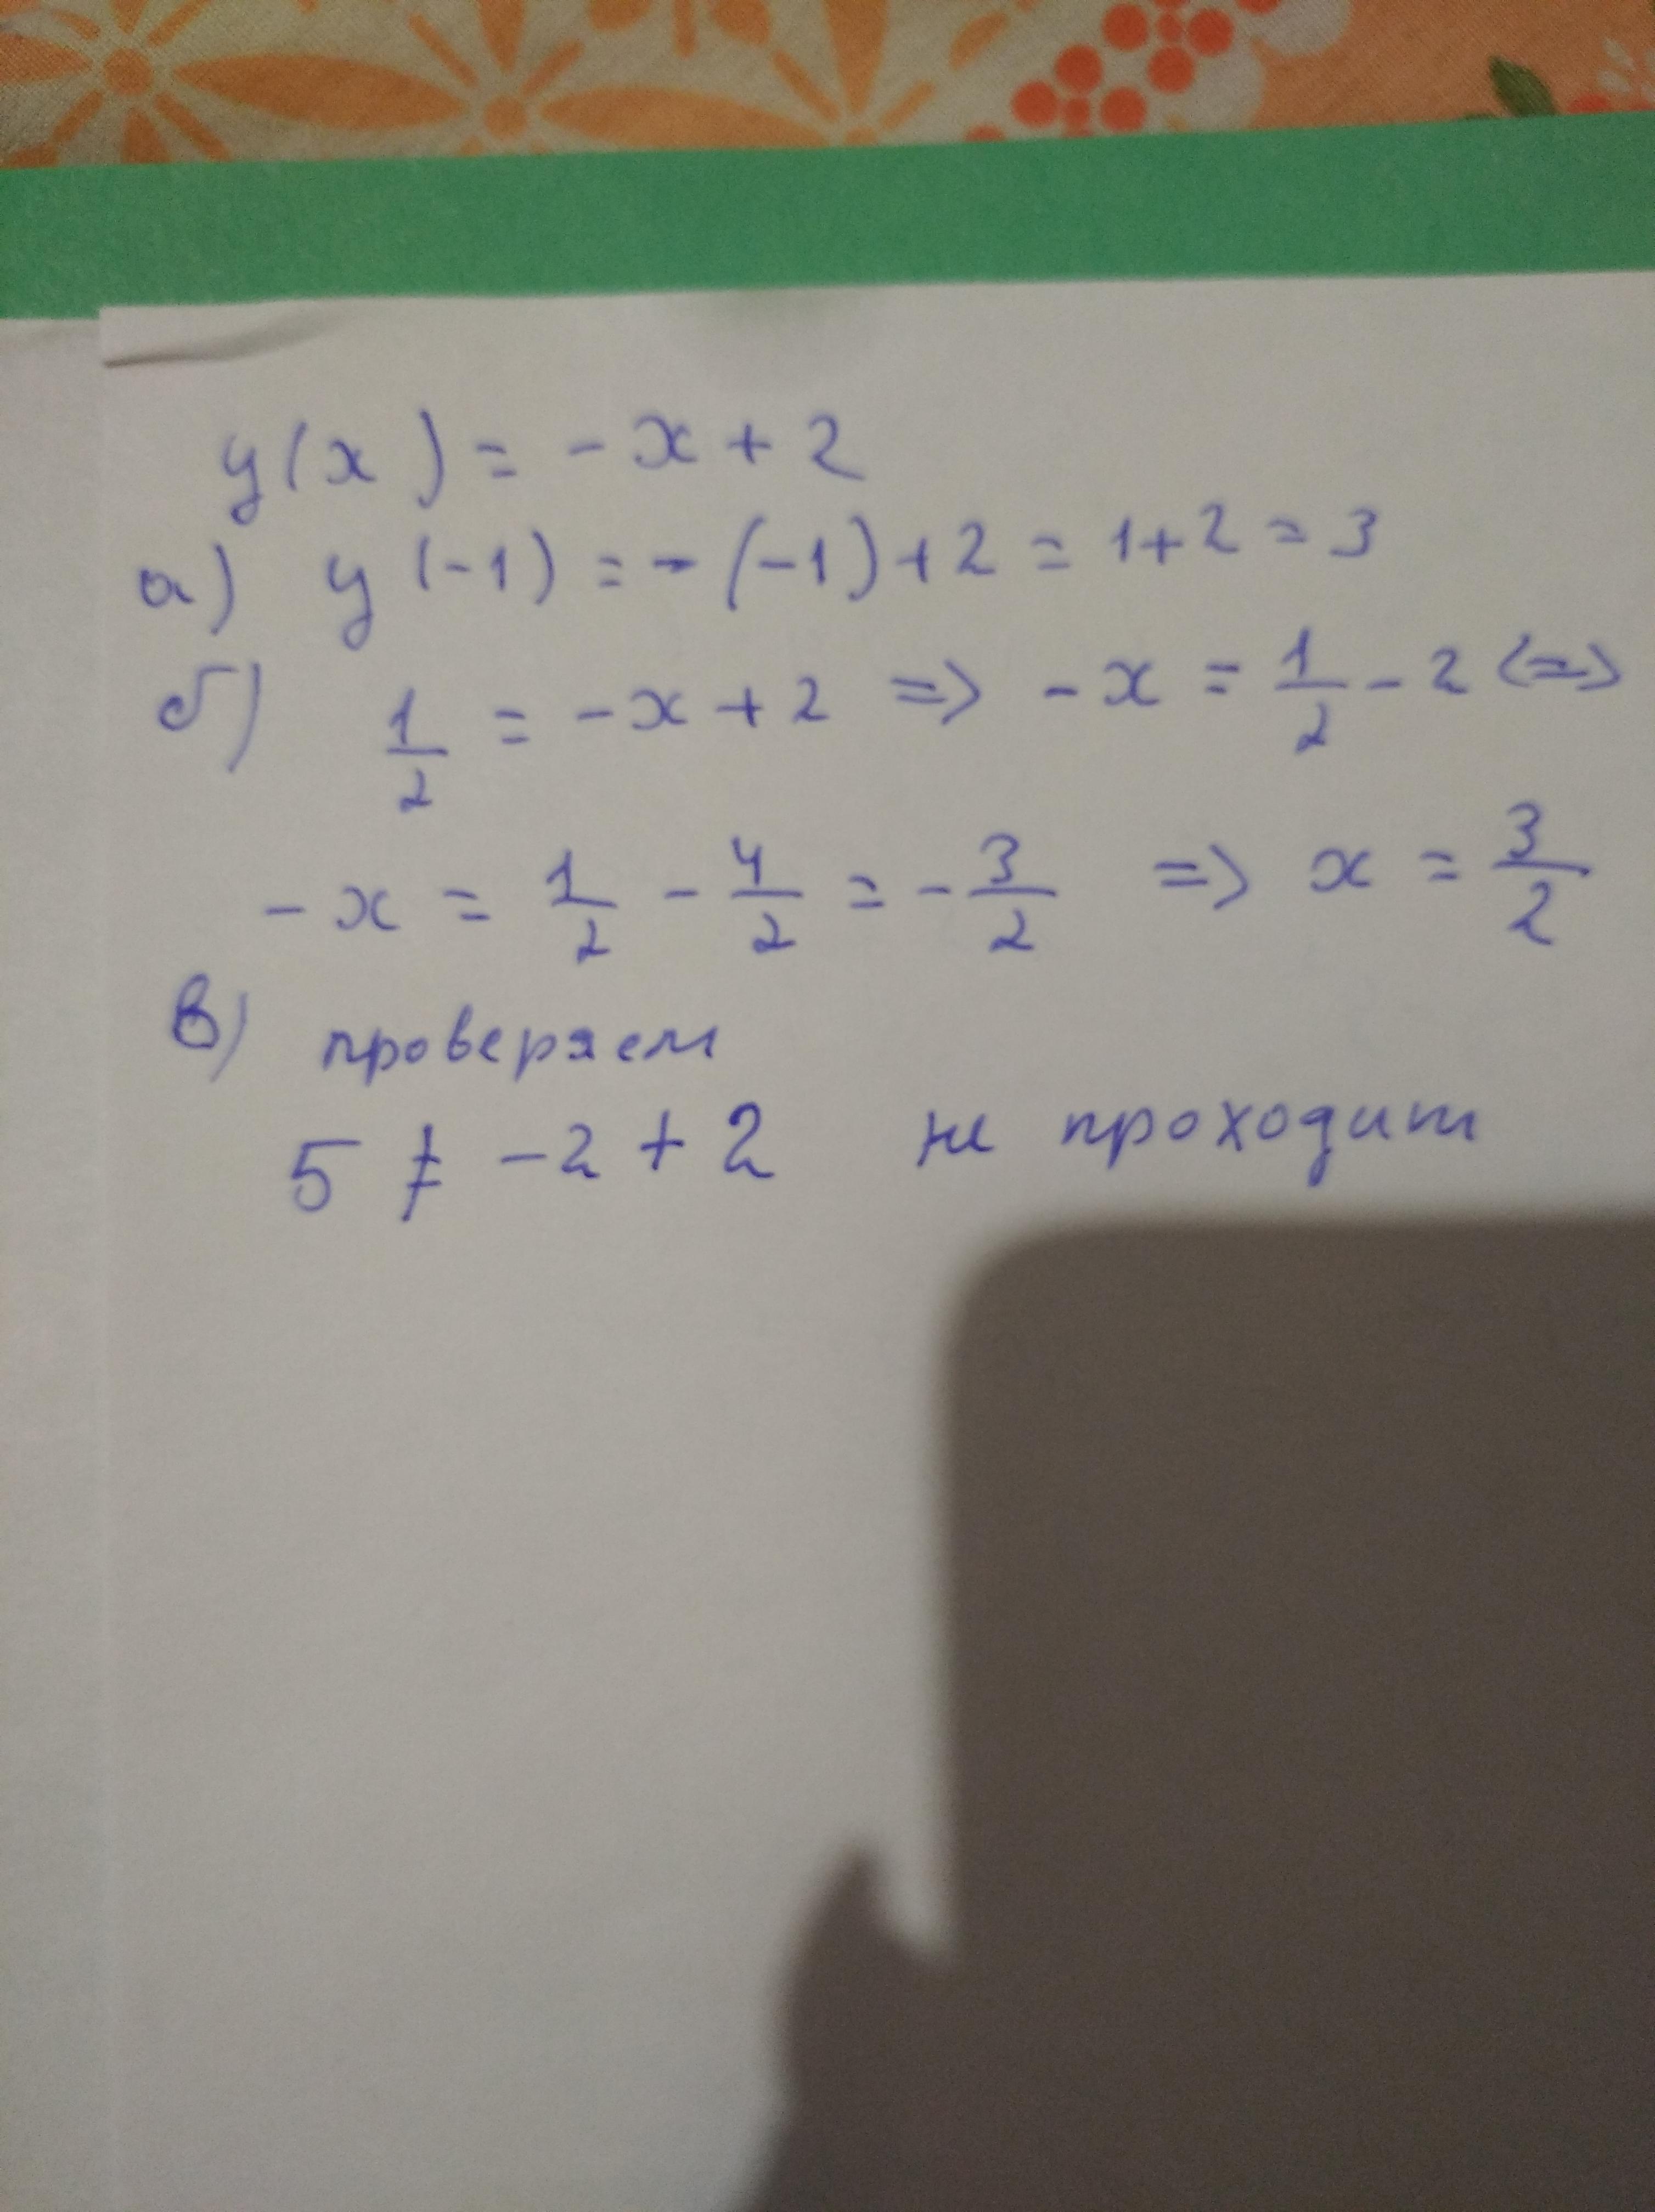 y(x) = -x + 2
а) y(-1) = -(-1)+2 = 1+2 = 3
б) 1/2 = -x + 2 => -x = 1/2 - 2 <=>
-x = 1/2 - 4/2 = -3/2 => x = 3/2
в) проверяем
5 ≠ -2 + 2 не проходит